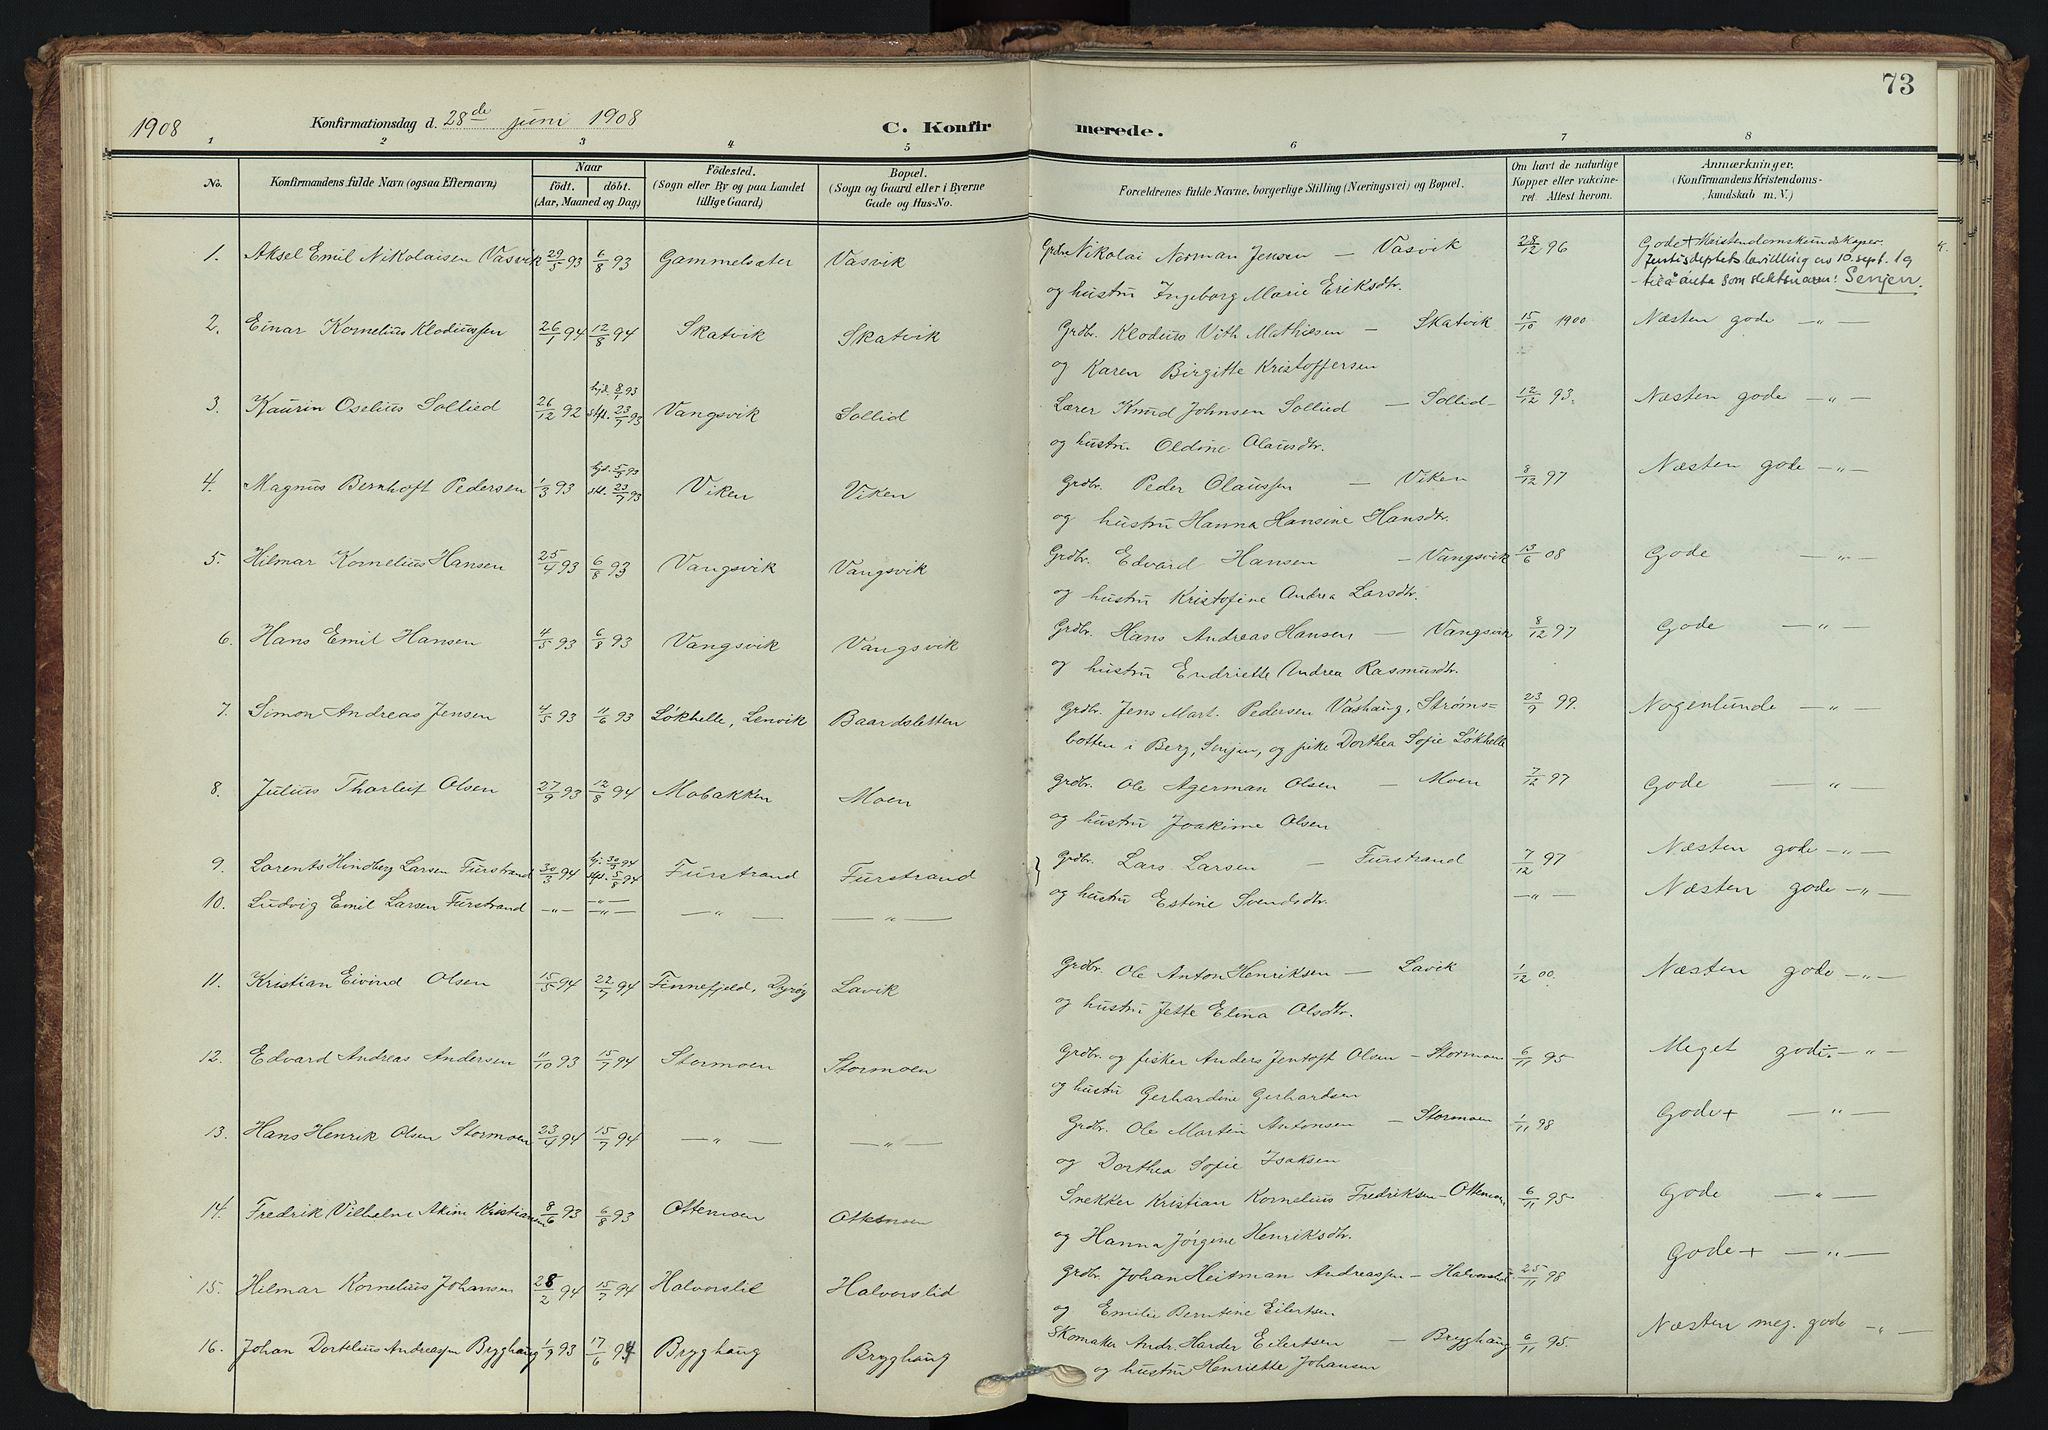 73
1908 Konfirmationsdag d. 28de juni 1908 C. Konfir merede.
1 2 3 4 5 6 7 8
No. Konfirmandens fulde Navn (ogsaa Efternavn) Naar født. døbt. (Aar, Maaned og Dag) Fødested. (Sogn eller By og paa Landet tillige Gaard) Bopæl. (Sogn og Gaard eller i Byerne Gade og Hus-No. Forældrenes fulde Navne, borgerlige Stilling (Næringsvei) og Bopæl. Om havt de naturlige Kopper eller vakcineret. Attest herom. Anmærkninger. (Konfirmandens Kristendomskundskab m. V.)
1. Aksel Emil Nikolaisen Vasvik 29/5 93 6/8 93 Gammelsæter Vasvik Grdbr. Nikolai Norman Jensen — Vasvik 28/12 96 Gode + Kristendomskundskaper.
og hustru Ingeborg Marie Eriksdtr. 10. sept. 19 til å anta som slektsnavn: Senjen.
2. Einar Kornelius Klodiussen 26/1 94 12/8 94 Skatvik Skatvik Grdbr. Klodius Vith Mathisen — Skatvik 15/10 1900 Næsten gode — " —
og Karen Birgitte Kristoffersen
3. Kaurin Oselius Sollied 26/12 92 hjd. 8/1 93 stf. 23/7 93 Vangsvik Sollid Lærer Knud Johnsen Sollied — Sollid — 12/12 93. Næsten gode — " —
og hustru Oldine Olausdtr.
4. Magnus Bernhoft Pedersen 1/3 93 hjd. 5/3 93 stf. 23/7 93 Viken Viken Grdbr. Peder Olaussen — Viken 8/12 97 Næsten gode — " —
og hustru Hanna Hansine Hansdtr.
5. Hilmar Kornelius Hansen 25/4 93 6/8 93 Vangsvik Vangsvik Grdbr. Edvard Hansen — Vangsvik 13/6 08 Gode — " —
og hustru Kristofine Andrea Larsdtr.
6. Hans Emil Hansen 4/5 93 6/8 93 Vangsvik Vangsvik Grdbr. Hans Andreas Hansen — Vangsvik 8/12 97 Gode — " —
og hustru Endriette Andrea Rasmusdtr.
7. Simon Andreas Jensen 4/5 93 11/6 93 Løkhelle, Lenvik Baardsletten Grdbr. Jens Mart. Pedersen Vashaug, Strøms= 23/9 99. Nogenlunde — " —
botten i Berg, Senjen, og pike Dorthea Sofie Løkhelle
8. Julius Thorleif Olsen 27/9 93 12/8 94 Mobakken Moen Grdbr. Ole Agerman Olsen — Moen 7/12 97 Gode — " —
og hustru Joakime Olsen
9. Larents Hindberg Larsen Furstrand 30/3 94 hj. 30/3 94 stf. 5/8 94 Furstrand Furstrand Grdbr. Lars Larsen — Furstrand 7/12 97 Næsten gode — " —
10. Ludvig Emil Larsen Furstrand — " — — " — — " — — " — og hustru Estine Svendsdtr. — " — Næsten gode — " —
11. Kristian Eivind Olsen 15/5 94 22/7 94 Finnefjeld, Dyrøy Lavik Grdbr. Ole Anton Henriksen — Lavik 1/12 00. Næsten gode — " —
og hustru Jette Elina Olsdtr.
12. Edvard Andreas Andersen 11/10 93 15/7 94 Stormoen Stormoen Grdbr. og fisker Anders Jentoft Olsen — Stormoen 6/11 95 Meget gode — " —
og hustru Gerhardine Gerhardsen
13. Hans Henrik Olsen Stormoen 23/4 94 15/7 94 — " — — " — Grdbr. Ole Martin Antonsen — Stormoen 1/11 98 Gode + — " —
og Dorthea Sofie Isaksen
14. Fredrik Vilhelm Akim Kristiansen 8/6 93 6/8 93 Ottemoen Ottemoen Snekker Kristian Kornelius Fredriksen — Ottemoen 6/11 95 Gode — " —
og Hanna Jørgine Henriksdtr.
15. Hilmar Kornelius Johansen 28/2 94 15/7 94 Halvorslid Halvorslid Grdbr. Johan Heitman Andreassen — Halvorslid 25/11 98 Gode + — " —
og Emilie Berntine Eilertsen
16. Johan Dortelius Andreassen Brygghaug 1/9 93 17/6 94 Brygghaug Brygghaug Skomaker Andr. Harder Eilertsen — Brygghaug 6/11 95. Næsten meg. gode — " —
og hustru Henriette Johansen